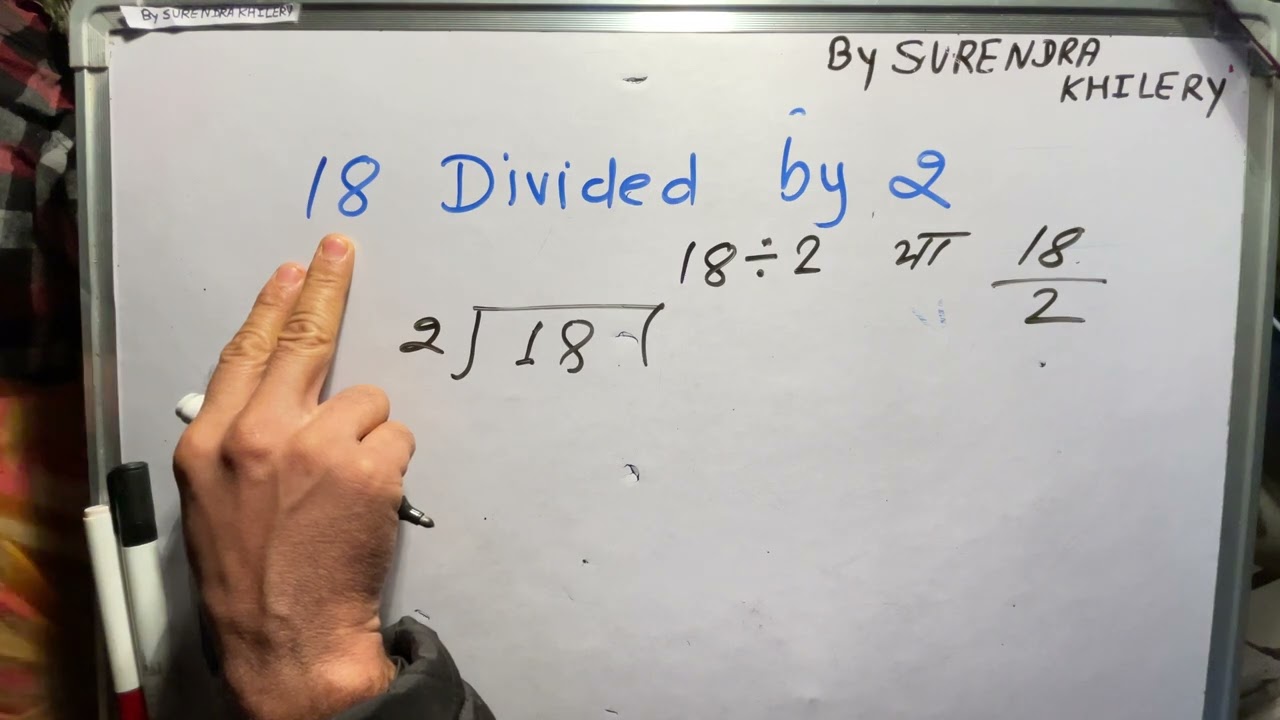 By SURENDRA KHILERY
By SURENDRA
KHILERY
18 Divided by 2
18÷2 या 18/2
2)18(